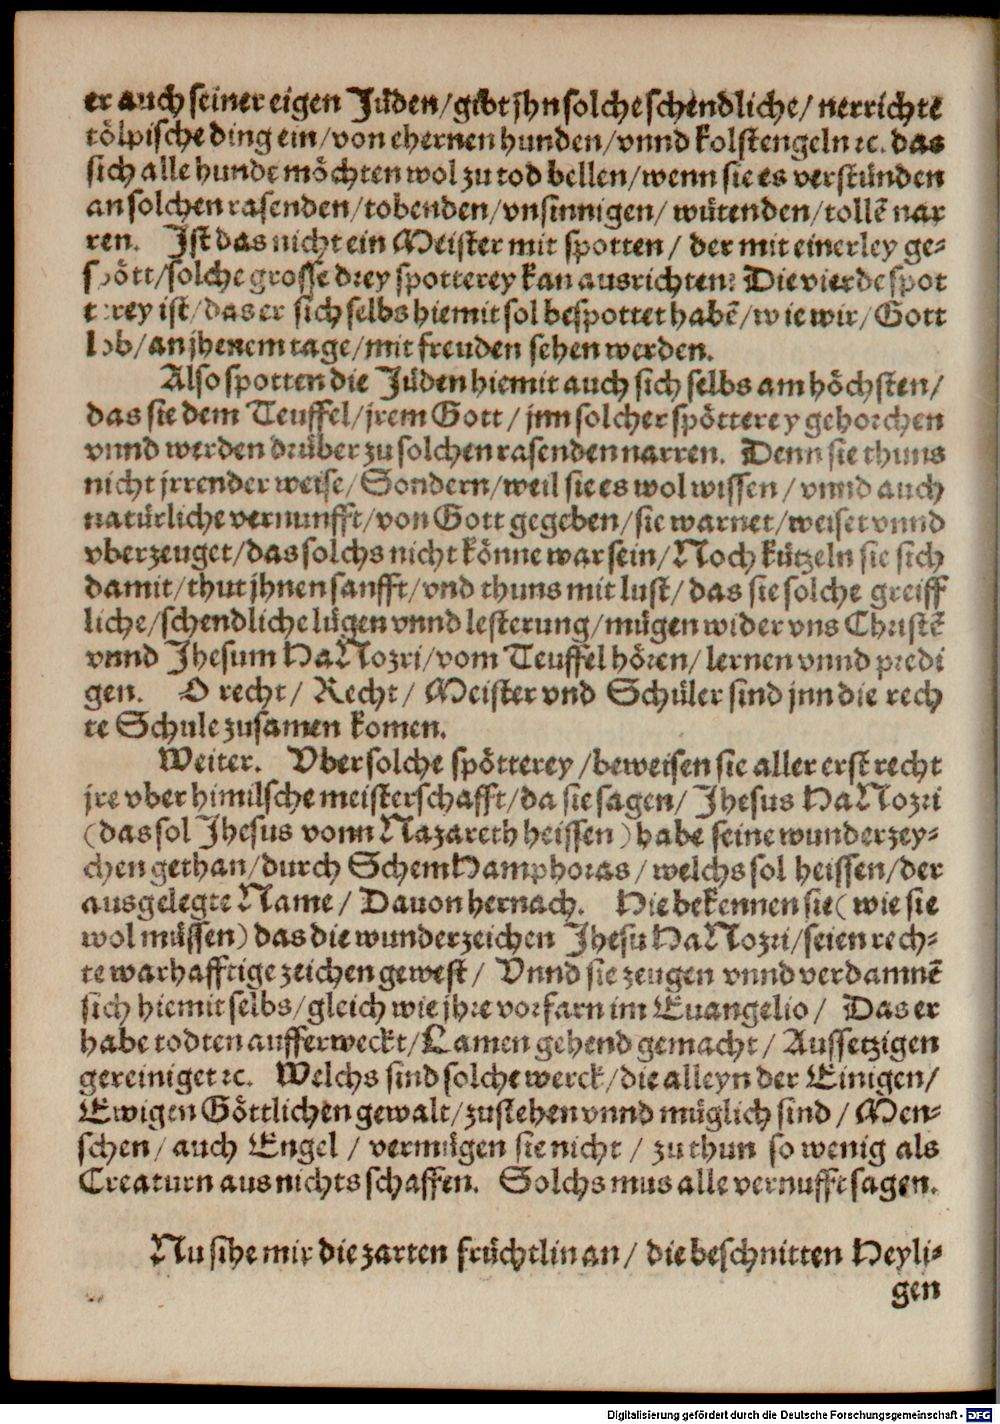 er auch seiner eigen Jüden/gibt jhn solche schendliche/ nerrichte
tölpische ding ein/von ehernen hunden/vnnd kolstengeln ꝛc. das
sich alle hunde möchten wol zu tod bellen/wenn sie es verstünden
an solchen rasenden/tobenden/vnsinnigen/ wütenden/tollē nar
ren. Ist das nicht ein Meister mit spotten/ der mit einerley ge-
spött/solche grosse drey spotterey kan ausrichten: Die vierde spot
terey ist/das er sich selbs hiemit sol bespottet habē/wie wir/Gott
lob/an jhenem tage/mit freuden sehen werden.
Also spotten die Jüden hiemit auch sich selbs am höchsten/
das sie dem Teuffel/jrem Gott/jnn solcher spötterey gehorchen
vnnd werden drüber zu solchen rasenden narren. Denn sie thuns
nicht jrrender weise/Sondern/weil sie es wol wissen/vnnd auch
natürliche vernunfft/von Gott gegeben/sie warnet/weiset vnnd
vberzeuget/das solchs nicht könne war sein/Noch kützeln sie sich
damit/thut jhnen sanfft/vnd thuns mit lust/das sie solche greiff
liche/schendliche lügen vnnd lesterung/mügen wider vns Christē
vnnd Jhesum HaNozri/vom Teuffel hören/lernen vnnd predi
gen. O recht/ Recht/ Meister vnd Schüler sind jnn die rech
te Schule zusamen komen.
Weiter. Vber solche spötterey/beweisen sie aller erst recht
jre vber himilsche meisterschafft/da sie sagen/ Jhesus HaNozri
(das sol Jhesus vonn Nazareth heissen) habe seine wunderzey-
chen gethan/durch SchemHamphoras/welchs sol heissen/der
ausgelegte Name/ Dauon hernach. Hie bekennen sie( wie sie
wol müssen) das die wunderzeichen Jhesu HaNozri/seien rech-
te warhafftige zeichen gewest/ Vnnd sie zeugen vnnd verdamnē
sich hiemit selbs/gleich wie jhre vorfarn im Euangelio/ Das er
habe todten aufferweckt/Lamen gehend gemacht/ Aussetzigen
gereiniget ꝛc. Welchs sind solche werck/die alleyn der Einigen/
Ewigen Göttlichen gewalt/zustehen vnnd müglich sind/Men-
schen/ auch Engel/ vermügen sie nicht/ zu thun so wenig als
Creaturn aus nichts schaffen. Solchs mus alle vernufft sagen.
Nu sihe mir die zarten früchtlin an/ die beschnitten Heyli-
gen
Digitalisierung gefördert durch die Deutsche Forschungsgemeinschaft - DFG